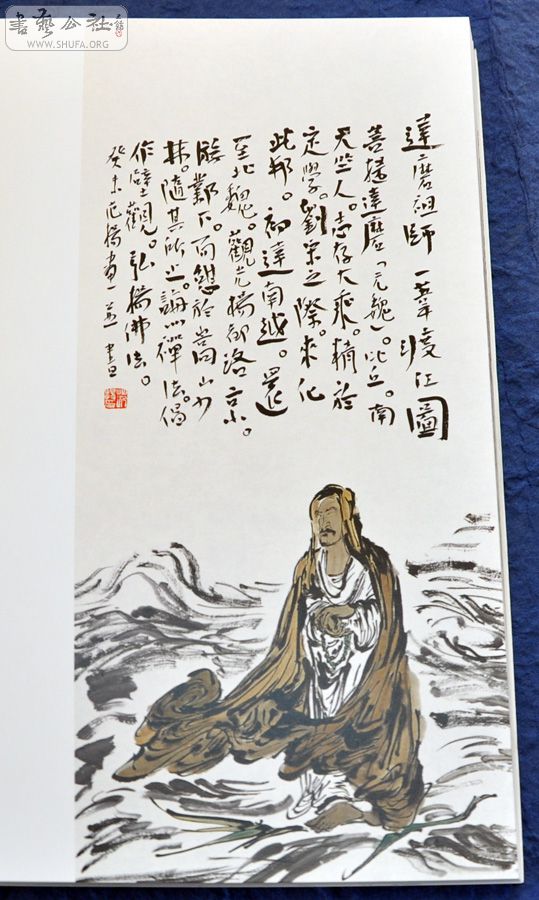 書藝公社
WWW.SHUFA.ORG
達磨祖師一葦渡江圖
菩提達磨「元魏」。比丘。南
天竺人。志存大乘。精於
定學。劉宋之際。來化
此邦。初達南越。
至北魏。觀光揚都洛京。
鄴下。而憩於嵩山少
林。隨其所止。誨以禪法。倡
作壁觀。弘揚佛法。
癸未范揚畫并書